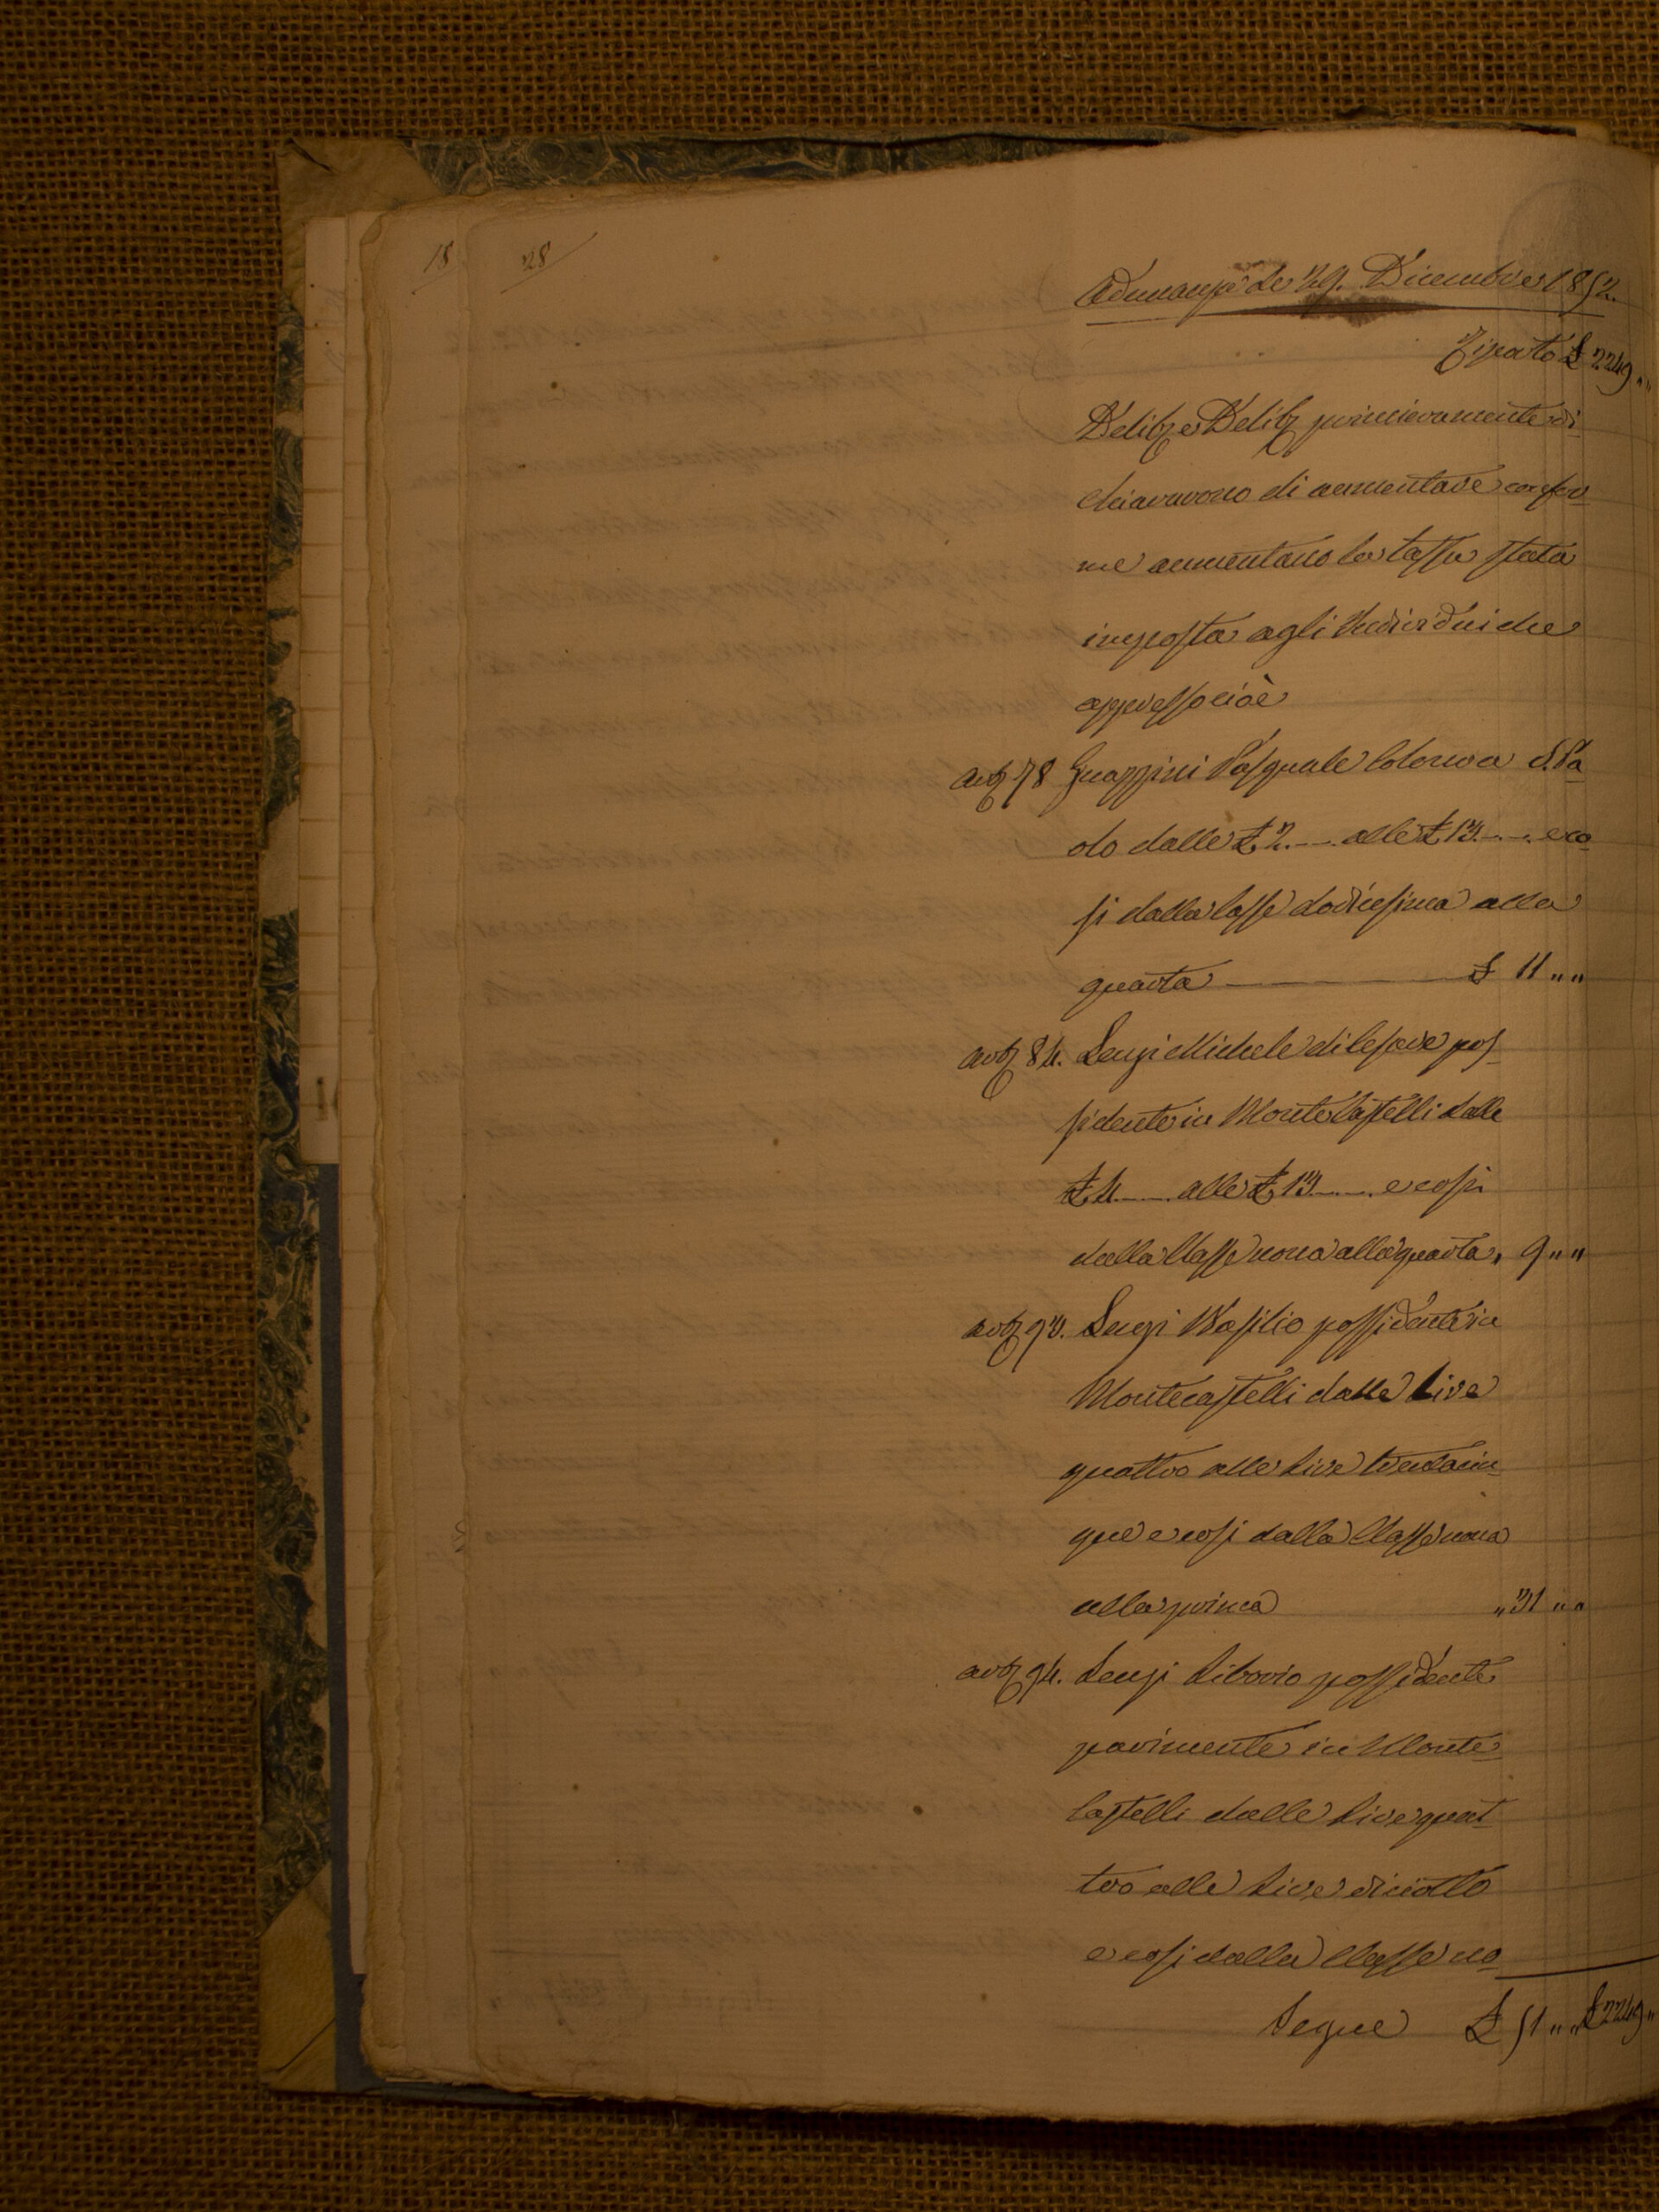 18 28
Adunanza de 29. Dicembre 1852.
Riporto £ 2249 „ „
Delibi e Delibi primieramente di
chiararono di aumentare confor
me aumentano la tassa stata
imposta agli Individui che
appresso cioè
art 78 Guazzini Pasquale Colono a S. Pa
olo dalle £ 2. — alle £ 13. — e co
si dalla Classe dodicesima alla
quarta £ 11 „ „
art 84. Lenzi Michele di Cesare pos
sidente in Monte Castelli dalle
£ 4 — alle £ 13 — e cosi
dalla Classe nona alla quarta „ 9 „ „
art 93. Lenzi Basilio possidente in
Montecastelli dalle Lire
quattro alle Lire trentacin
que e cosi dalla Classe nona
alla prima „ 31 „ „
art 94. Lenzi Liborio possidente
parimente in Monte
Castelli dalle Lire quat
tro alle Lire diciotto
e cosi dalla Classe no
Segue £ 51 „ „ £ 2249 „